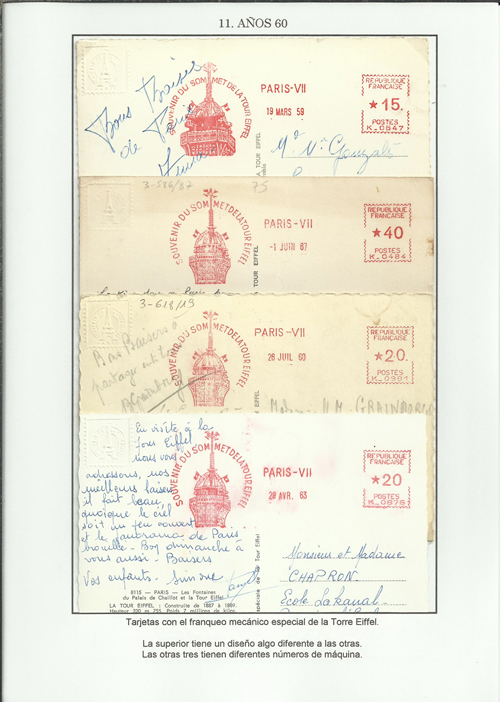 11. AÑOS 60
Bons Baisers
de Paris
SOUVENIR DU SOMMET DE LA TOUR EIFFEL
PARIS-VII
19 MARS 59
REPUBLIQUE
FRANCAISE
★15.
POSTES
K.0847
LA TOUR EIFFEL
3-586/87
75
SOUVENIR DU SOMMET DE LA TOUR EIFFEL
PARIS-VII
-1 JUIN 67
REPUBLIQUE
FRANÇAISE
★40
POSTES
K.0484
LA TOUR EIFFEL
3-618/19
Bons Baisers
SOUVENIR DU SOMMET DE LA TOUR EIFFEL
PARIS-VII
26 JUIL 60
REPUBLIQUE
FRANÇAISE
★20.
POSTES
En visite à la
Tour Eiffel
nous vous
adressons, nos
meilleurs baisers
il fait beau,
quoique le ciel
soit un peu couvert
et le panorama de Paris
brouillé - Boy dimanche à
vous aussi - Baisers
Vos enfants. Simone
SOUVENIR DU SOMMET DE LA TOUR EIFFEL
PARIS-VII
28 AVR. 63
REPUBLIQUE
FRANÇAISE
★20
POSTES
K.0876
8115 - PARIS - Les Fontaines
du Palais de Chaillot et la Tour Eiffel
LA TOUR EIFFEL : Construite de 1887 à 1889.
Hauteur 320 m 755. Poids 7 millions de kilos.
Monsieur et Madame
CHAPRON
Ecole Lakanal
Tarjetas con el franqueo mecánico especial de la Torre Eiffel.
La superior tiene un diseño algo diferente a las otras.
Las otras tres tienen diferentes números de máquina.